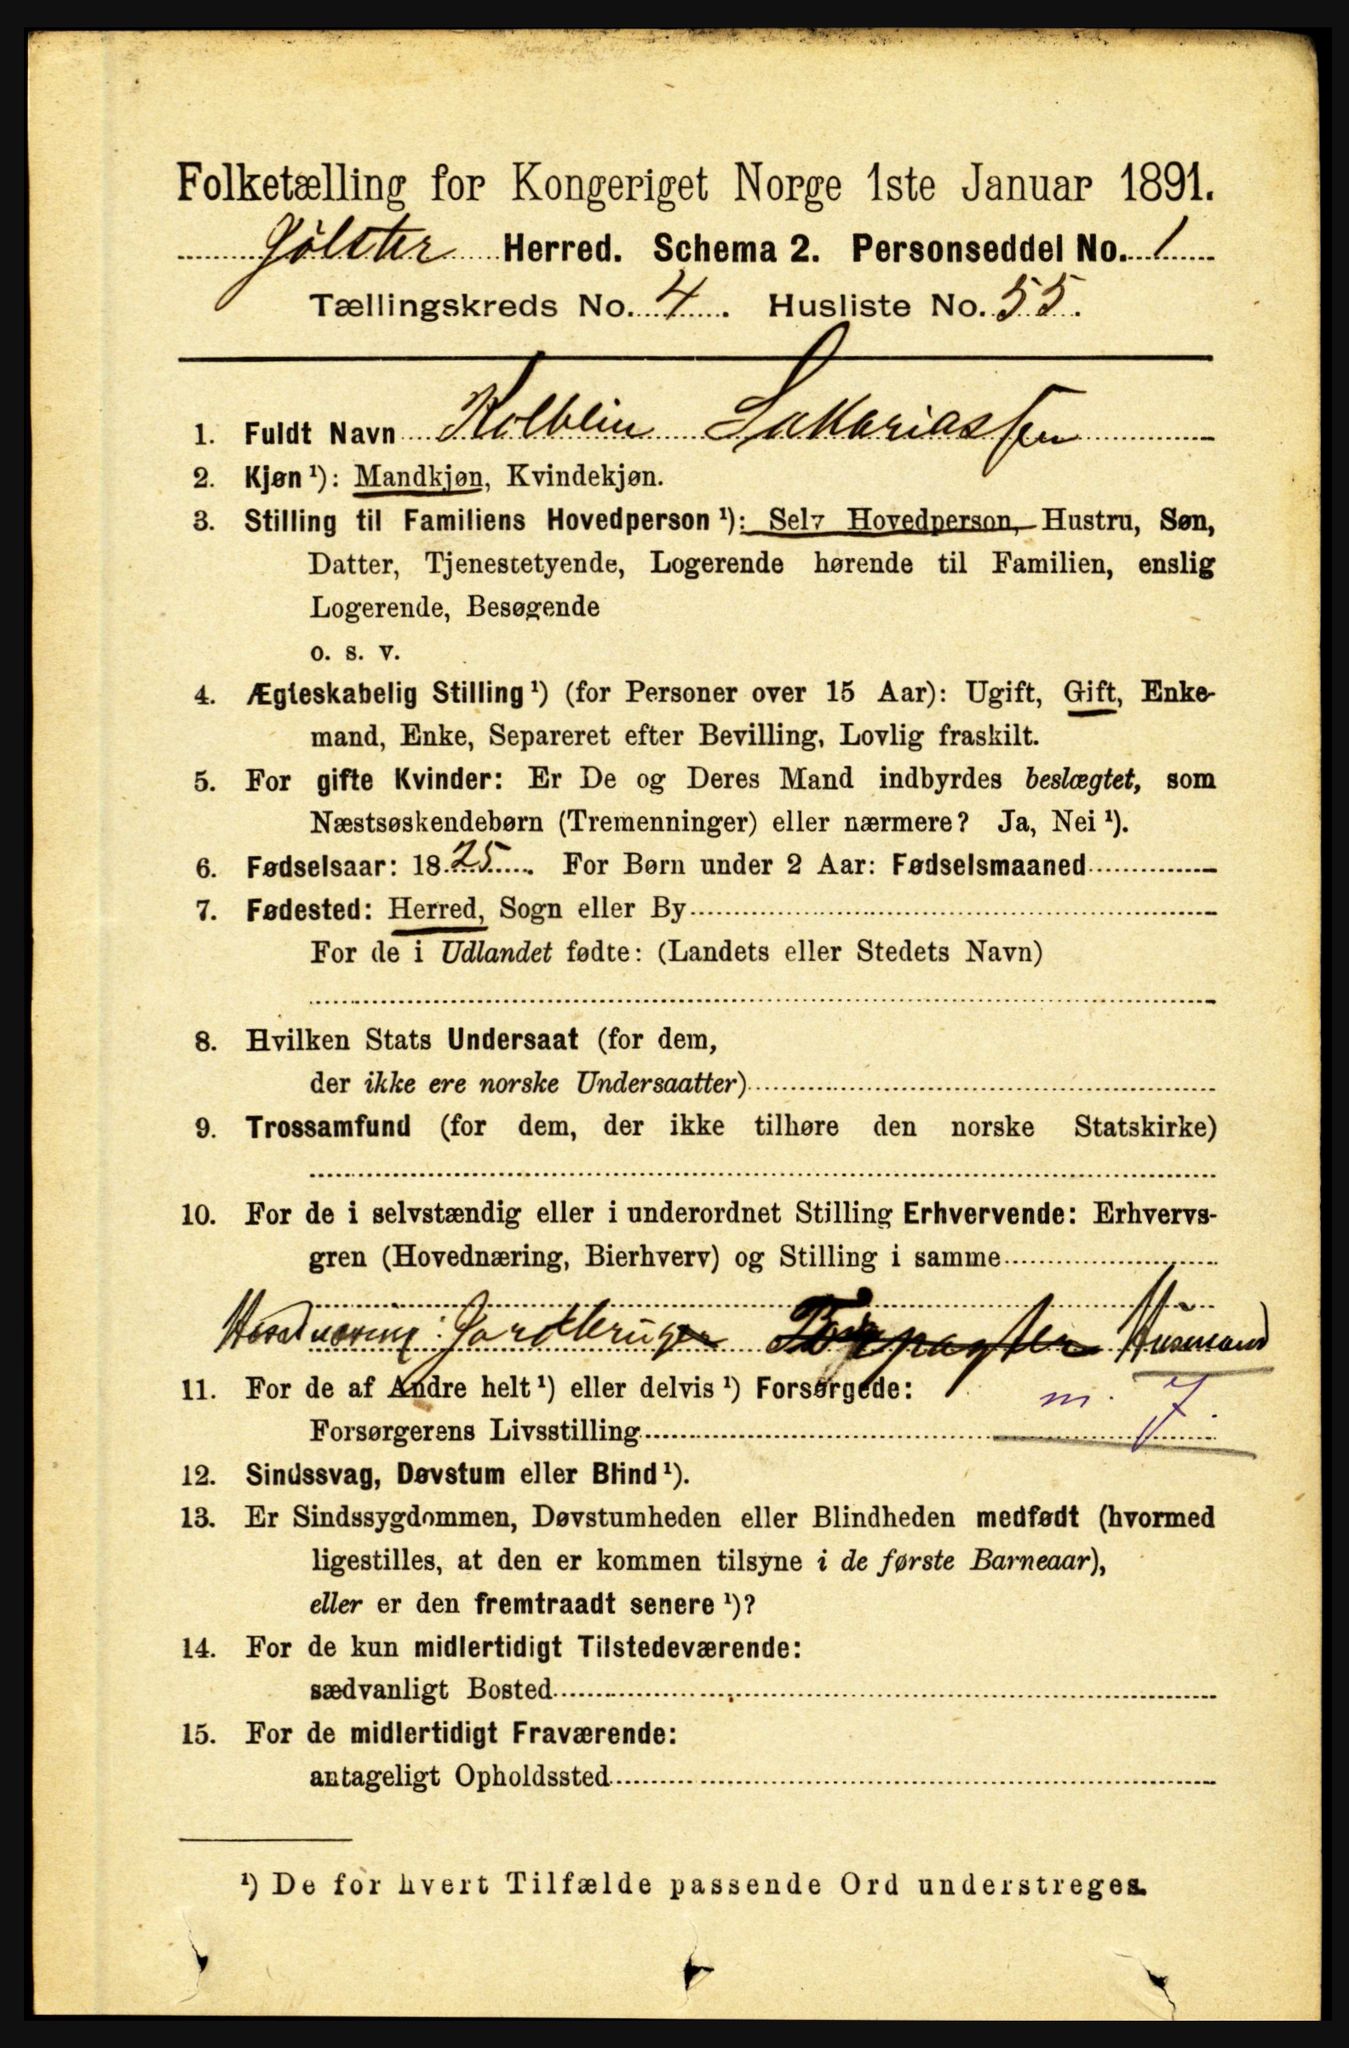 Folketælling for Kongeriget Norge 1ste Januar 1891.
Jølster Herred. Schema 2. Personseddel No. 1
Tællingskreds No. 4. Husliste No. 55.
1. Fuldt Navn Kolblin Sakariassen
2. Kjøn¹): Mandkjøn, Kvindekjøn.
3. Stilling til Familiens Hovedperson¹): Selv Hovedperson, Hustru, Søn,
Datter, Tjenestetyende, Logerende hørende til Familien, enslig
Logerende, Besøgende
o. s. v.
4. Ægteskabelig Stilling¹) (for Personer over 15 Aar): Ugift, Gift, Enke-
mand, Enke, Separeret efter Bevilling, Lovlig fraskilt.
5. For gifte Kvinder: Er De og Deres Mand indbyrdes beslægtet, som
Næstsøskendebørn (Tremenninger) eller nærmere? Ja, Nei¹).
6. Fødselsaar: 1825. For Børn under 2 Aar: Fødselsmaaned
7. Fødested: Herred, Sogn eller By
For de i Udlandet fødte: (Landets eller Stedets Navn)
8. Hvilken Stats Undersaat (for dem,
der ikke ere norske Undersaatter)
9. Trossamfund (for dem, der ikke tilhøre den norske Statskirke)
10. For de i selvstændig eller i underordnet Stilling Erhvervende: Erhvervs-
gren (Hovednæring, Bierhverv) og Stilling i samme
Hovednæring: Jordbruger Husmand
11. For de af Andre helt¹) eller delvis¹) Forsørgede: m. J.
Forsørgerens Livsstilling
12. Sindssvag, Døvstum eller Blind¹).
13. Er Sindssygdommen, Døvstumheden eller Blindheden medfødt (hvormed
ligestilles, at den er kommen tilsyne i de første Barneaar),
eller er den fremtraadt senere¹)?
14. For de kun midlertidigt Tilstedeværende:
sædvanligt Bosted
15. For de midlertidigt Fraværende:
antageligt Opholdssted
¹) De for hvert Tilfælde passende Ord understreges.